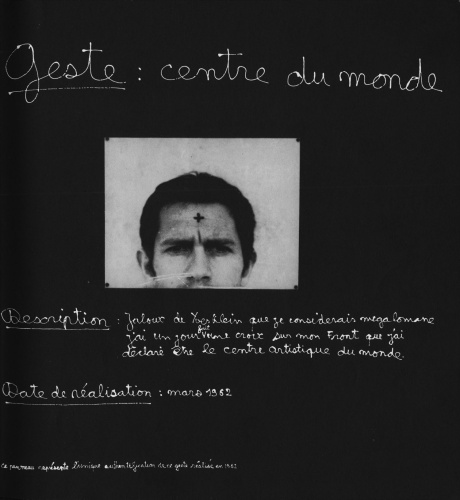 Geste : centre du monde
Description : Jaloux de Yves Klein que je considerais megalomane
j'ai un jour fait une croix sur mon front que j'ai
déclaré être le centre artistique du monde.
Date de réalisation : mars 1962
ce panneau représente l'unique authentification de ce geste réalisé en 1962